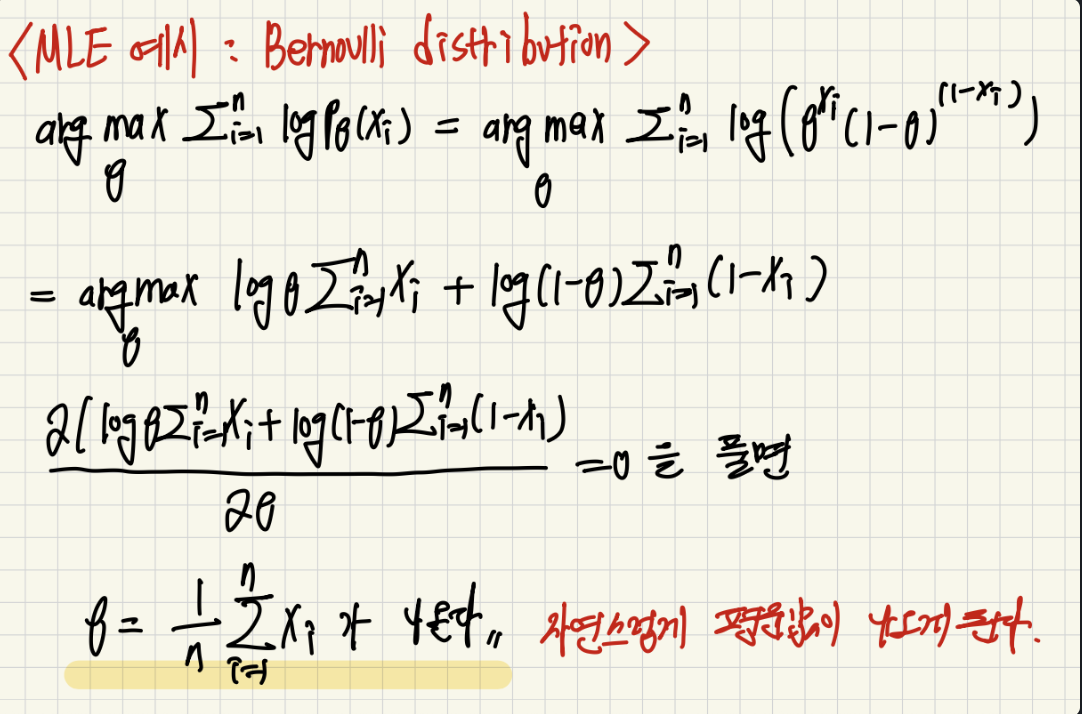 <MLE 예시 : Bernoulli distribution>
arg max_θ Σ_{i=1}^{n} log P_θ(x_i) = arg max_θ Σ_{i=1}^{n} log(θ^{x_i}(1-θ)^{(1-x_i)})
= arg max_θ log θ Σ_{i=1}^{n} x_i + log(1-θ) Σ_{i=1}^{n} (1-x_i)
∂(log θ Σ_{i=1}^{n} x_i + log(1-θ) Σ_{i=1}^{n} (1-x_i) / ∂θ = 0 을 풀면
θ = 1/n Σ_{i=1}^{n} x_i 가 나온다,, 자연스럽게 평균값이 나오게 된다.